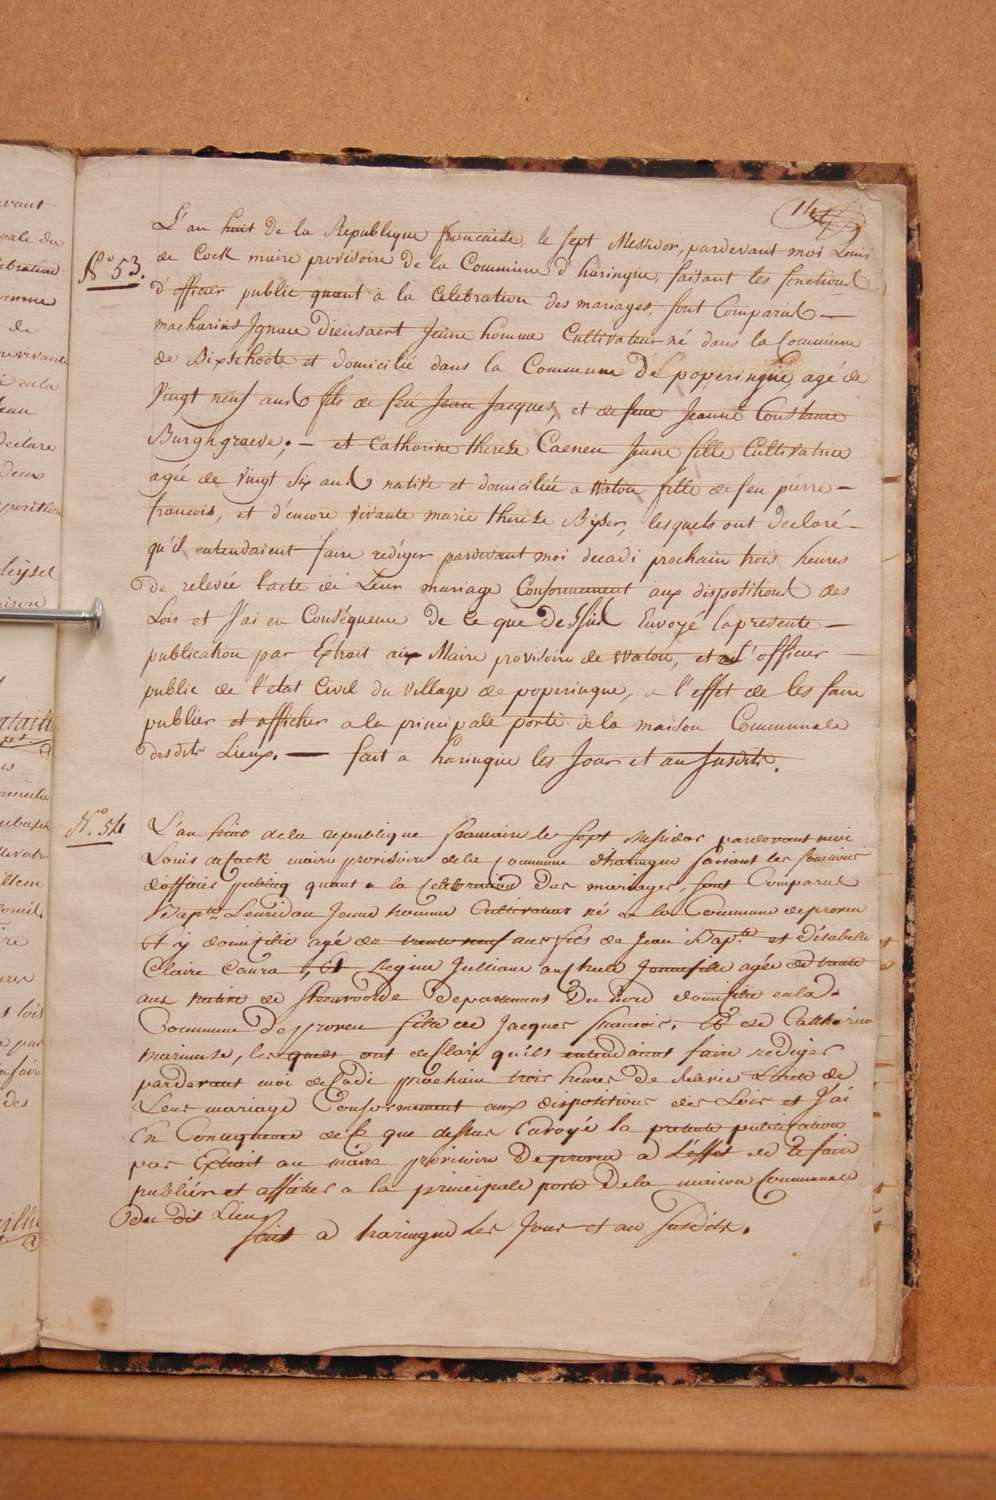 14
L'an huit de la République francaise le sept Messidor, pardevant moi Louis
de Cock maire provisoire de la Commune d'haringue, faisant les fonctions
N.° 53.
d'officier public quant à la Celebration des mariages, sont Comparus —
macharius Ignace Diensaert Jeune homme Cultivateur né dans la Commune
de Bixschoote et domicilié dans la Commune de poperingue, agé de
Vingt neuf ans fils de feu Jean Jacques, et de feue Jeanne Constance
Burghgraeve; — et Catharine therese Caeneu Jeune fille Cultivatrice
agée de Vingt Six ans native et domiciliée a Watou fille de feu pierre —
francois, et d'encore vivante marie therese Byser, lesquels ont declaré —
qu'il entendaient faire rediger pardevant moi decadi prochain trois heures
de relevée l'acte de Leur mariage Conformement aux dispositions des
Lois et J'ai en Conséquence de Ce que dessus Envoyé la presente —
publication par Extrait aux Maire provisoire de Watou, et a l'officier —
public de l'etat Civil du Village de poperingue, a l'effet de les faire
publier et afficher a la principale porte de la maison Communale
desdits Lieux. — fait a haringue les Jour et an Susdits.
N.° 54
L'an huit de la republique francaise le sept Messidor pardevant moi
Louis de Cock maire provisoire de la Commune d'haringue faisant les fonctions
d'officier public quant a la Celebration des mariages, sont Comparus
Bap.te Leuridan Jeune homme Cultivateur né a la Commune de proven
et y domicilié agé de trente neuf ans fils de Jean Bap.te et d'isabelle
Claire Coura, et Regine Julliane Jeunefille agée de trente
ans native de Steenvoorde departement Du nord domicilie en la
Commune de proven fille de Jacques francois, et de Catharine
, les quels ont declaré qu'ils entendaient faire rediger
pardevant moi decadi prochain trois heures de relevée L'acte de
Leur mariage Conformement aux dispositions des Lois et J'ai
en Consequence de Ce que dessus Envoyé la presente publication
par Extrait au maire provisoire De proven a L'effet de le faire
publier et afficher a la principale porte De la maison Communale
du dit Lieu
fait a haringue les Jour et an susdits.